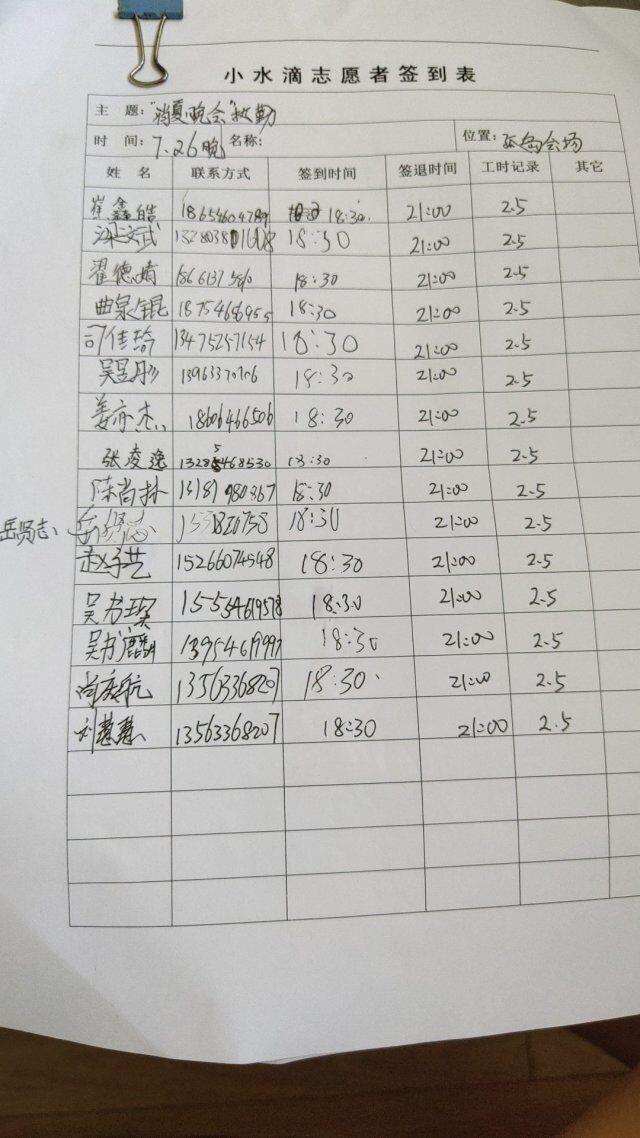 小水滴志愿者签到表
主 题："消夏晚会"执勤
时 间：7.26晚 名称： 位置： 会场
姓 名 联系方式 签到时间 签退时间 工时记录 其它
崔鑫皓 18654604789 18:30 21:00 2.5
梁文武 18:30 21:00 2.5
翟德靖 18:30 21:00 2.5
曲泉锟 18:30 21:00 2.5
司佳琦 13475257154 18:30 21:00 2.5
吴昱彤 18:30 21:00 2.5
姜亦杰 18606466506 18:30 21:00 2.5
张凌逸 13285468530 18:30 21:00 2.5
陈尚林 18:30 21:00 2.5
岳贤志、岳贤志 18:30 21:00 2.5
赵子艺 15266074548 18:30 21:00 2.5
吴书琪 15554619578 18:30 21:00 2.5
吴书麟 13954619997 18:30 21:00 2.5
尚庆航 13563368207 18:30 21:00 2.5
刘慧慧 13563368207 18:30 21:00 2.5